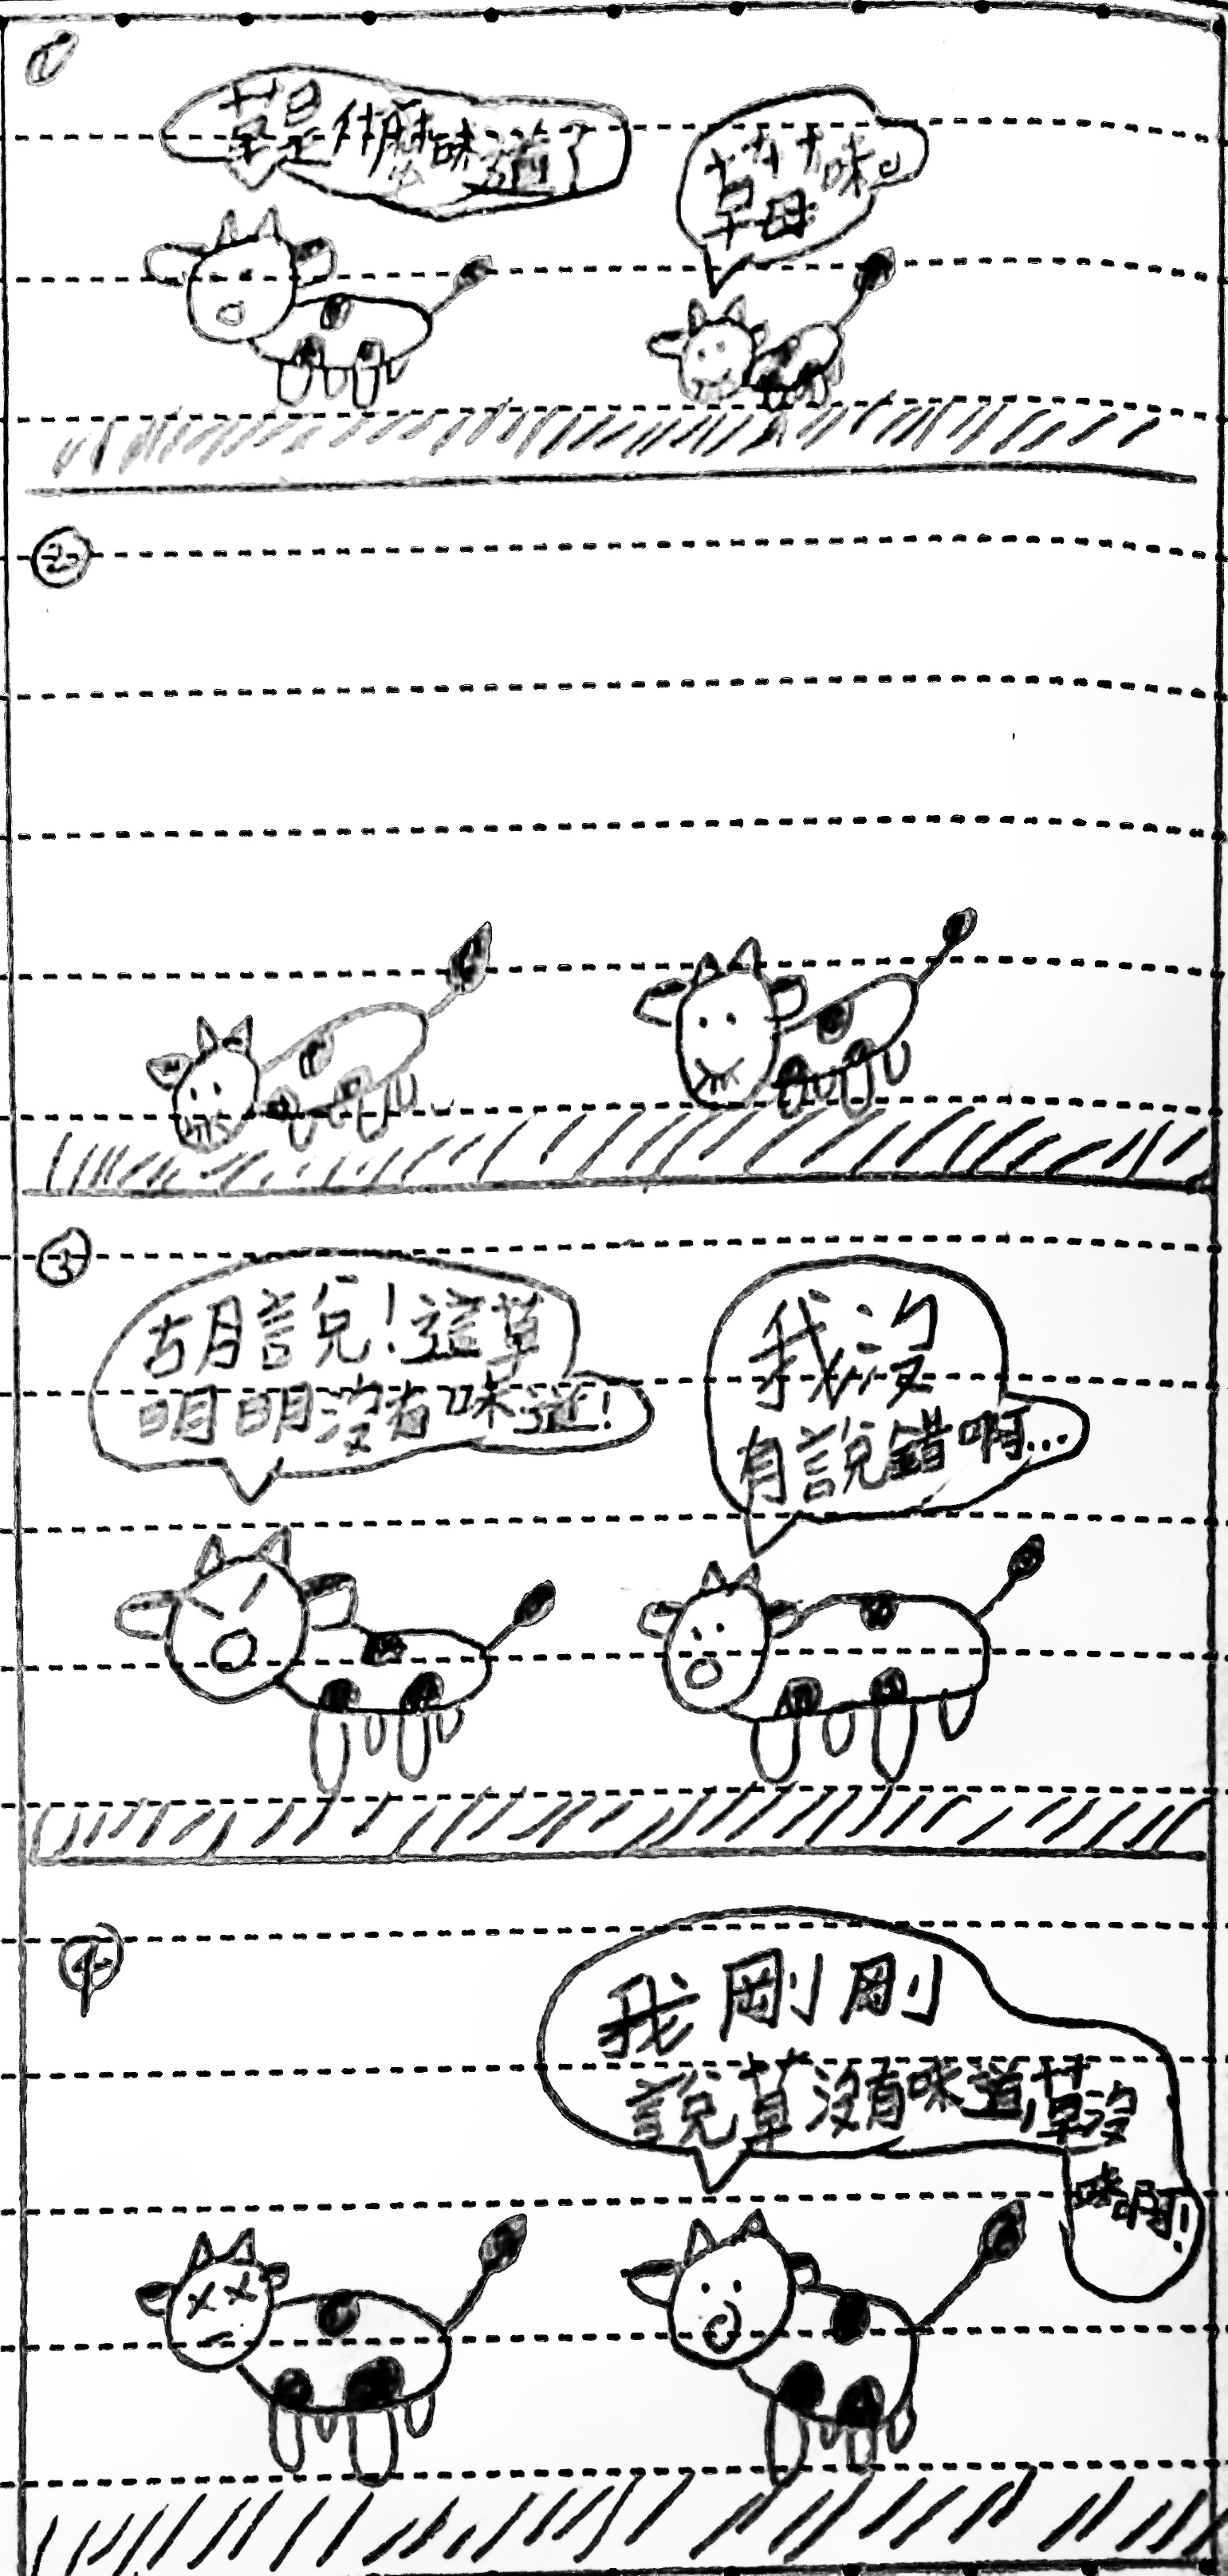 ①
草是什麼味道?
草莓味
②
③
胡說!這草
明明沒有味道!
我沒
有說錯啊...
④
我剛剛
說草沒有味道,草沒
味啊!